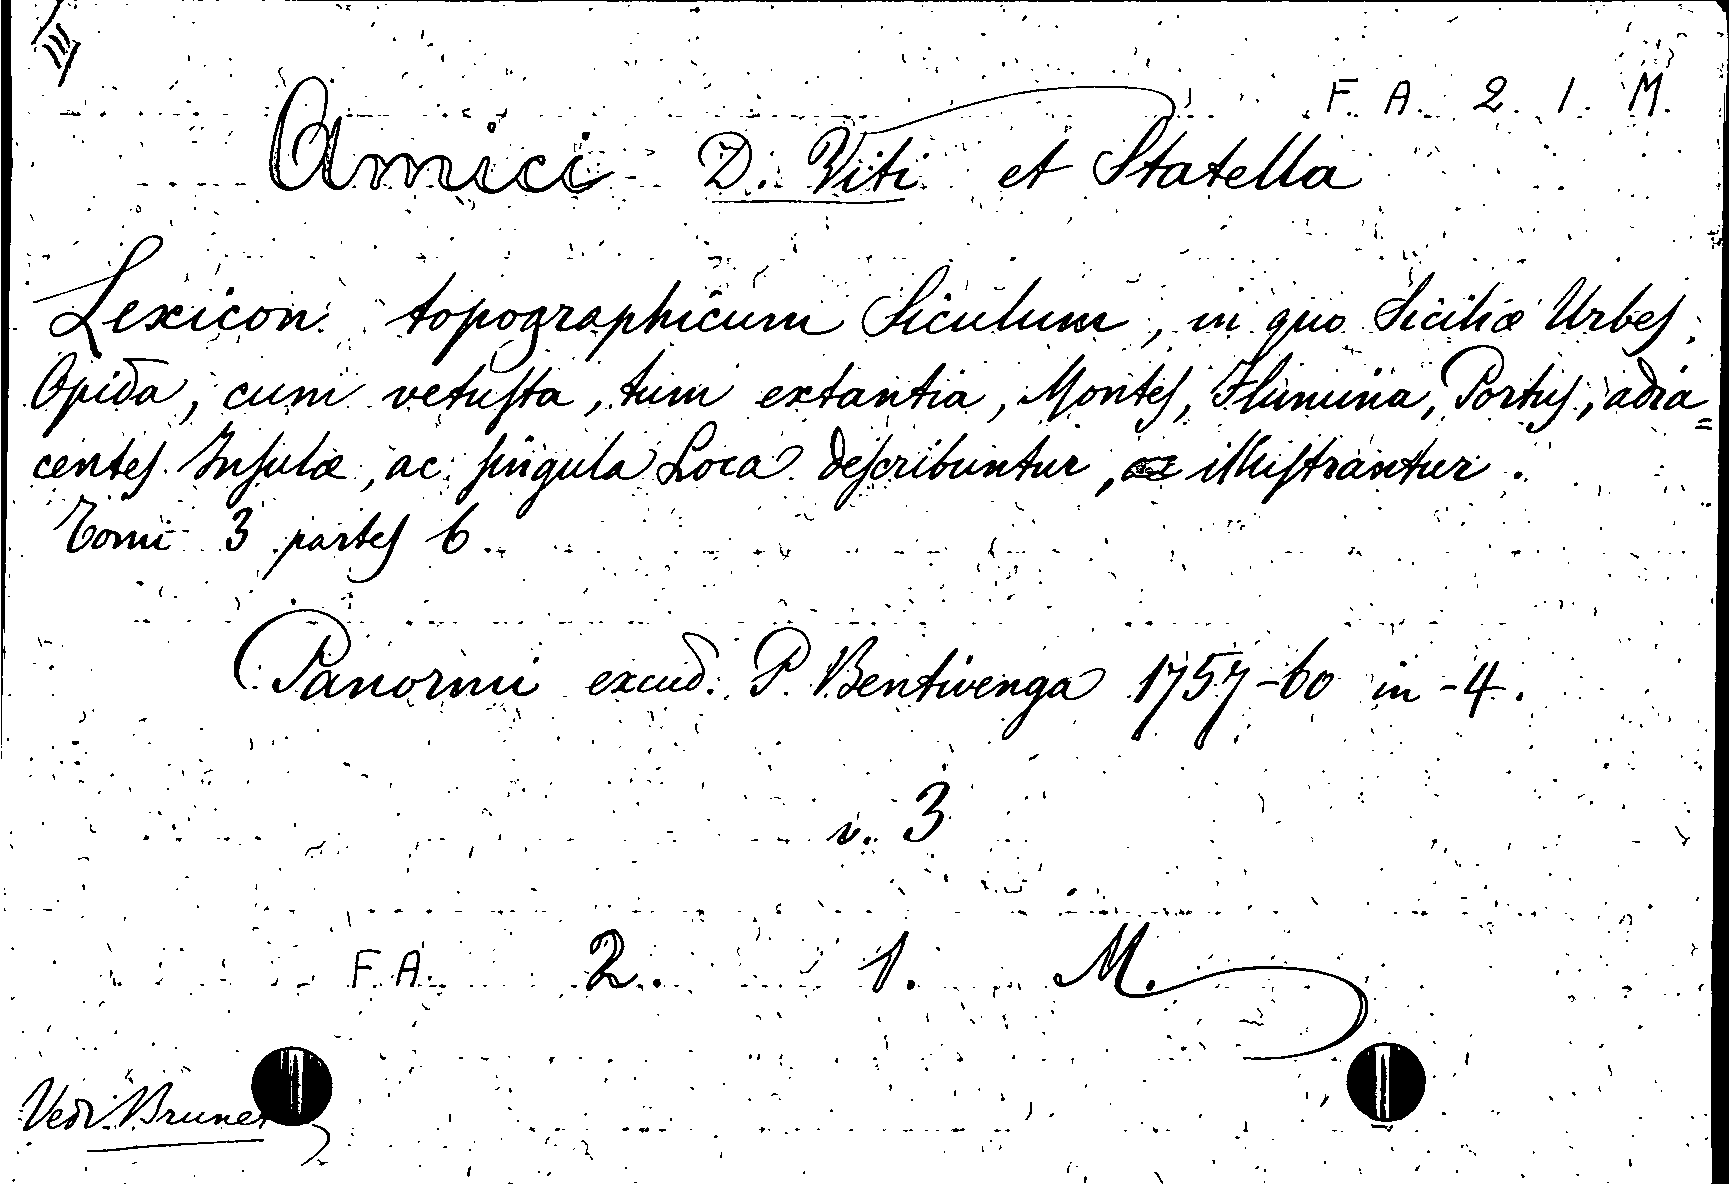 F. A. 2. 1. M.
Amici D. Viti et Statella
Lexicon topographicum Siculum, in quo Siciliæ Urbes,
Opida, cum vetusta, tum extantia, Montes, Flumina, Portus, adia=
centes Insulæ, ac singula Loca describuntur, ac illustrantur.
Tomi 3 partes 6.
Panormi excud. P. Bentivenga 1757-60 in-4.
v. 3
F. A. 2. 1. M.
Vedi Brunet